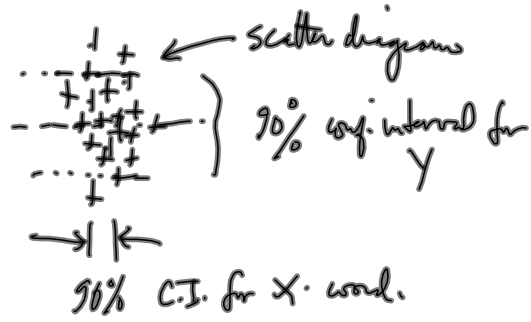 scatter diagram
90% conf. interval for
Y
90% C.I. for X. coord.